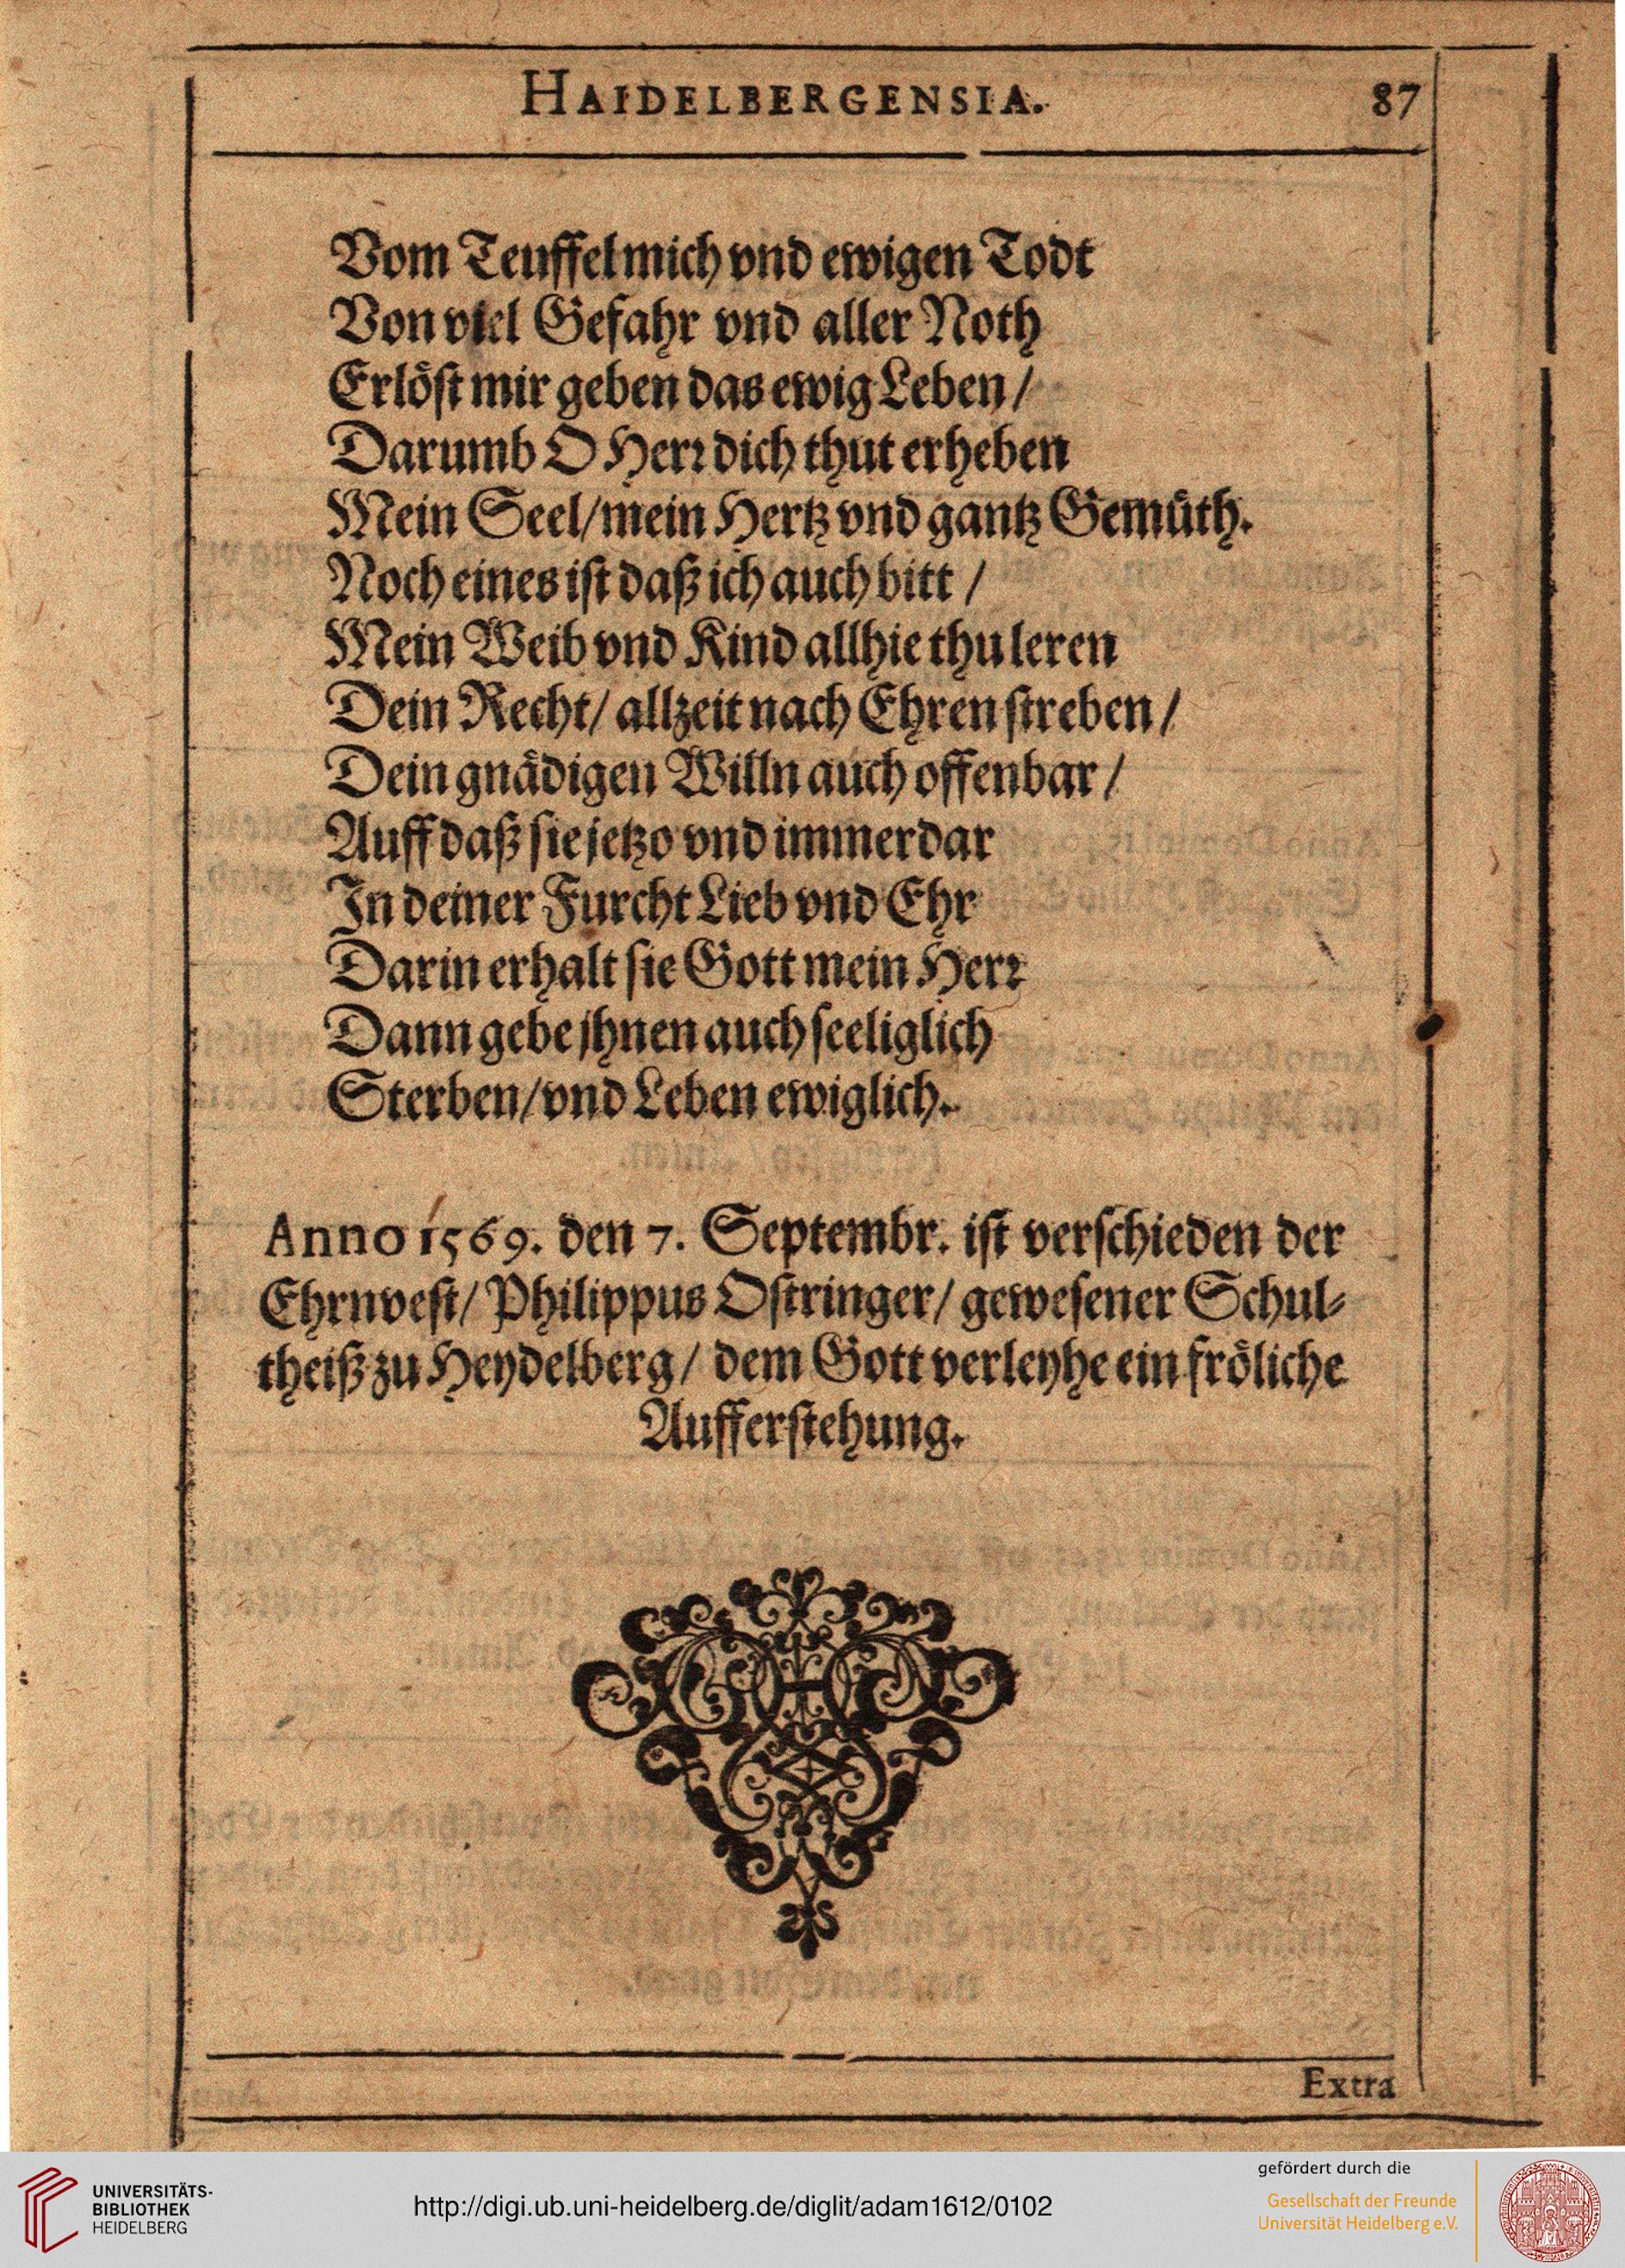 HAIDELBERGENSIA. 87
Vom Teuffel mich vnd ewigen Todt
Von viel Gefahr vnd aller Noth
Erlöſt mir geben das ewig Leben /
Darumb O Herꝛ dich thut erheben
Mein Seel/ mein Hertz vnd gantz Gemüth.
Noch eines iſt daß ich auch bitt /
Mein Weib vnd Kind allhie thu leren
Dein Recht/ allzeit nach Ehren ſtreben /
Dein gnädigen Willn auch offenbar /
Auff daß ſie jetzo vnd immerdar
In deiner Furcht Lieb vnd Ehr
Darin erhalt ſie Gott mein Herꝛ
Dann gebe jhnen auch ſeeliglich
Sterben/ vnd Leben ewiglich.
Anno 1569. den 7. Septembr. iſt verſchieden der
Ehrnveſt/ Philippus Oſtringer/ geweſener Schul⸗
theiß zu Heydelberg/ dem Gott verleyhe ein fröliche
Aufferſtehung.
Extra
UNIVERSITÄTS-
BIBLIOTHEK
HEIDELBERG
http://digi.ub.uni-heidelberg.de/diglit/adam1612/0102
gefördert durch die
Gesellschaft der Freunde
Universität Heidelberg e.V.